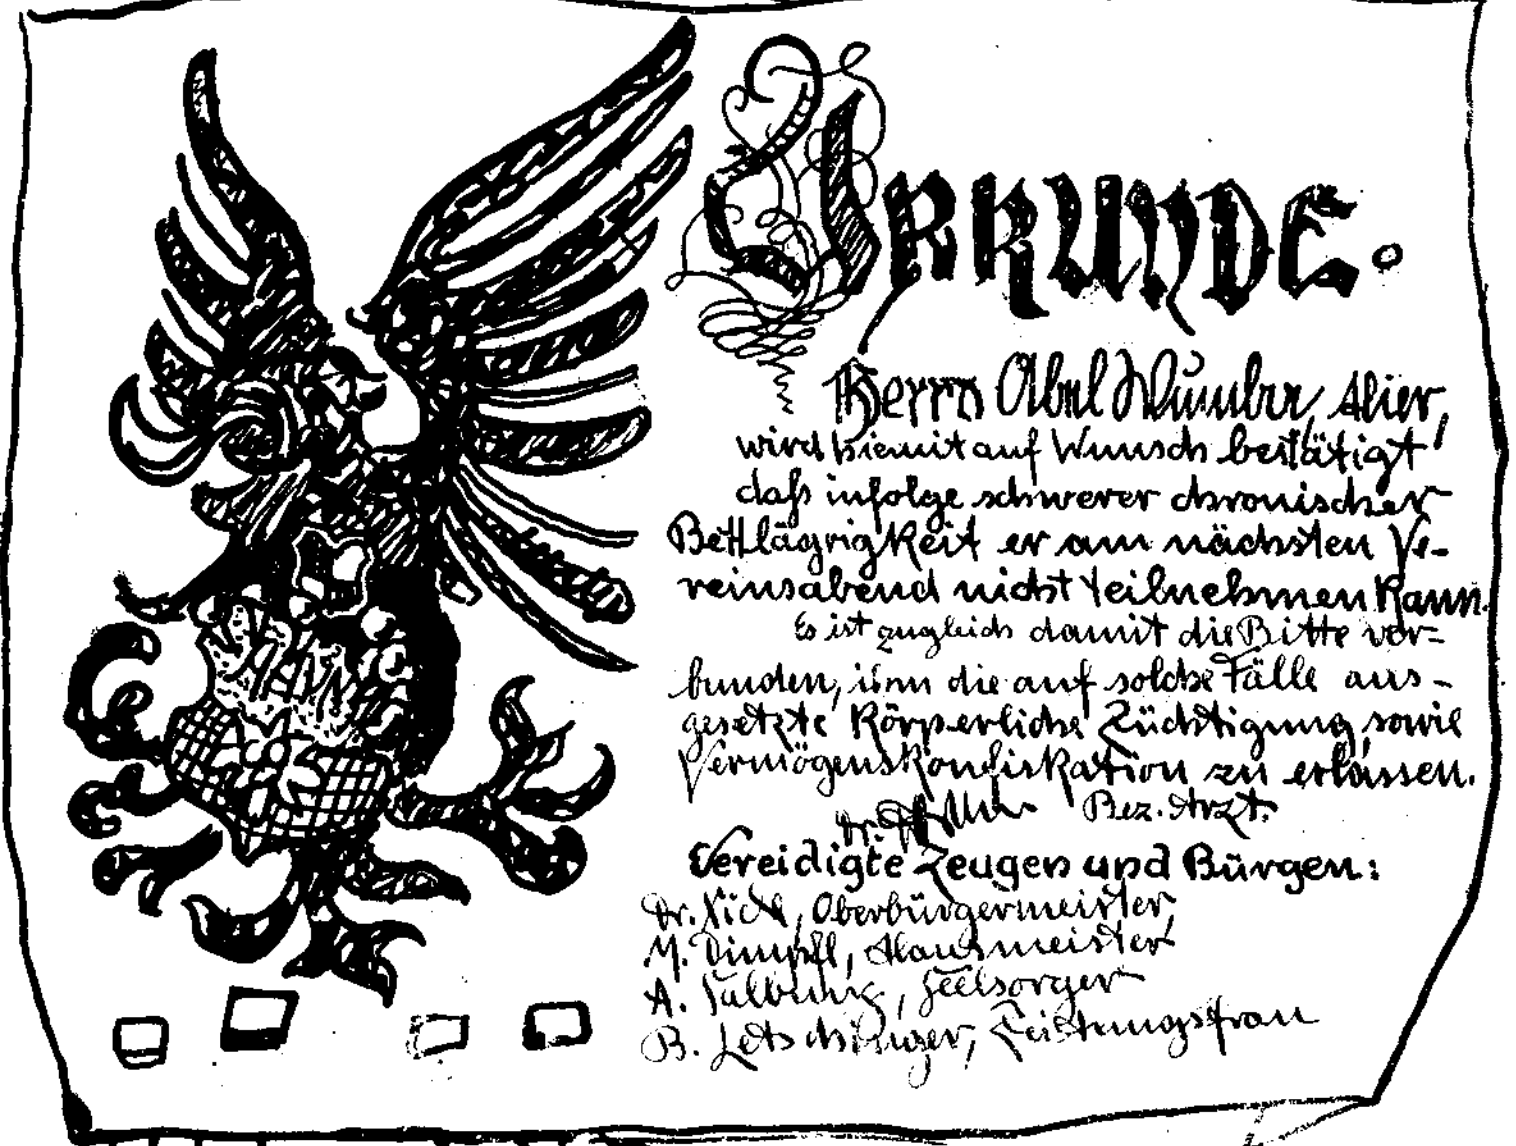 URKUNDE.
Herrn Abel Wumbrr, Hier,
wird hiemit auf Wunsch bestätigt
daß infolge schwerer chronischer
Bettlägrigkeit er am nächsten Ve-
reinsabend nicht teilnehmen kann.
Es ist zugleich damit die Bitte ver=
bunden, ihm die auf solche Fälle aus-
gesetzte körperliche Züchtigung, sowie
Vermögenskonfiskation zu erlassen.
Dr. Bez. Arzt.
Vereidigte Zeugen und Bürgen:
Dr. Nickl, Oberbürgermeister,
M. Dimpfl, Hausmeister
A. Salbung, Seelsorger
B. Letschinger, Zeitungsfrau